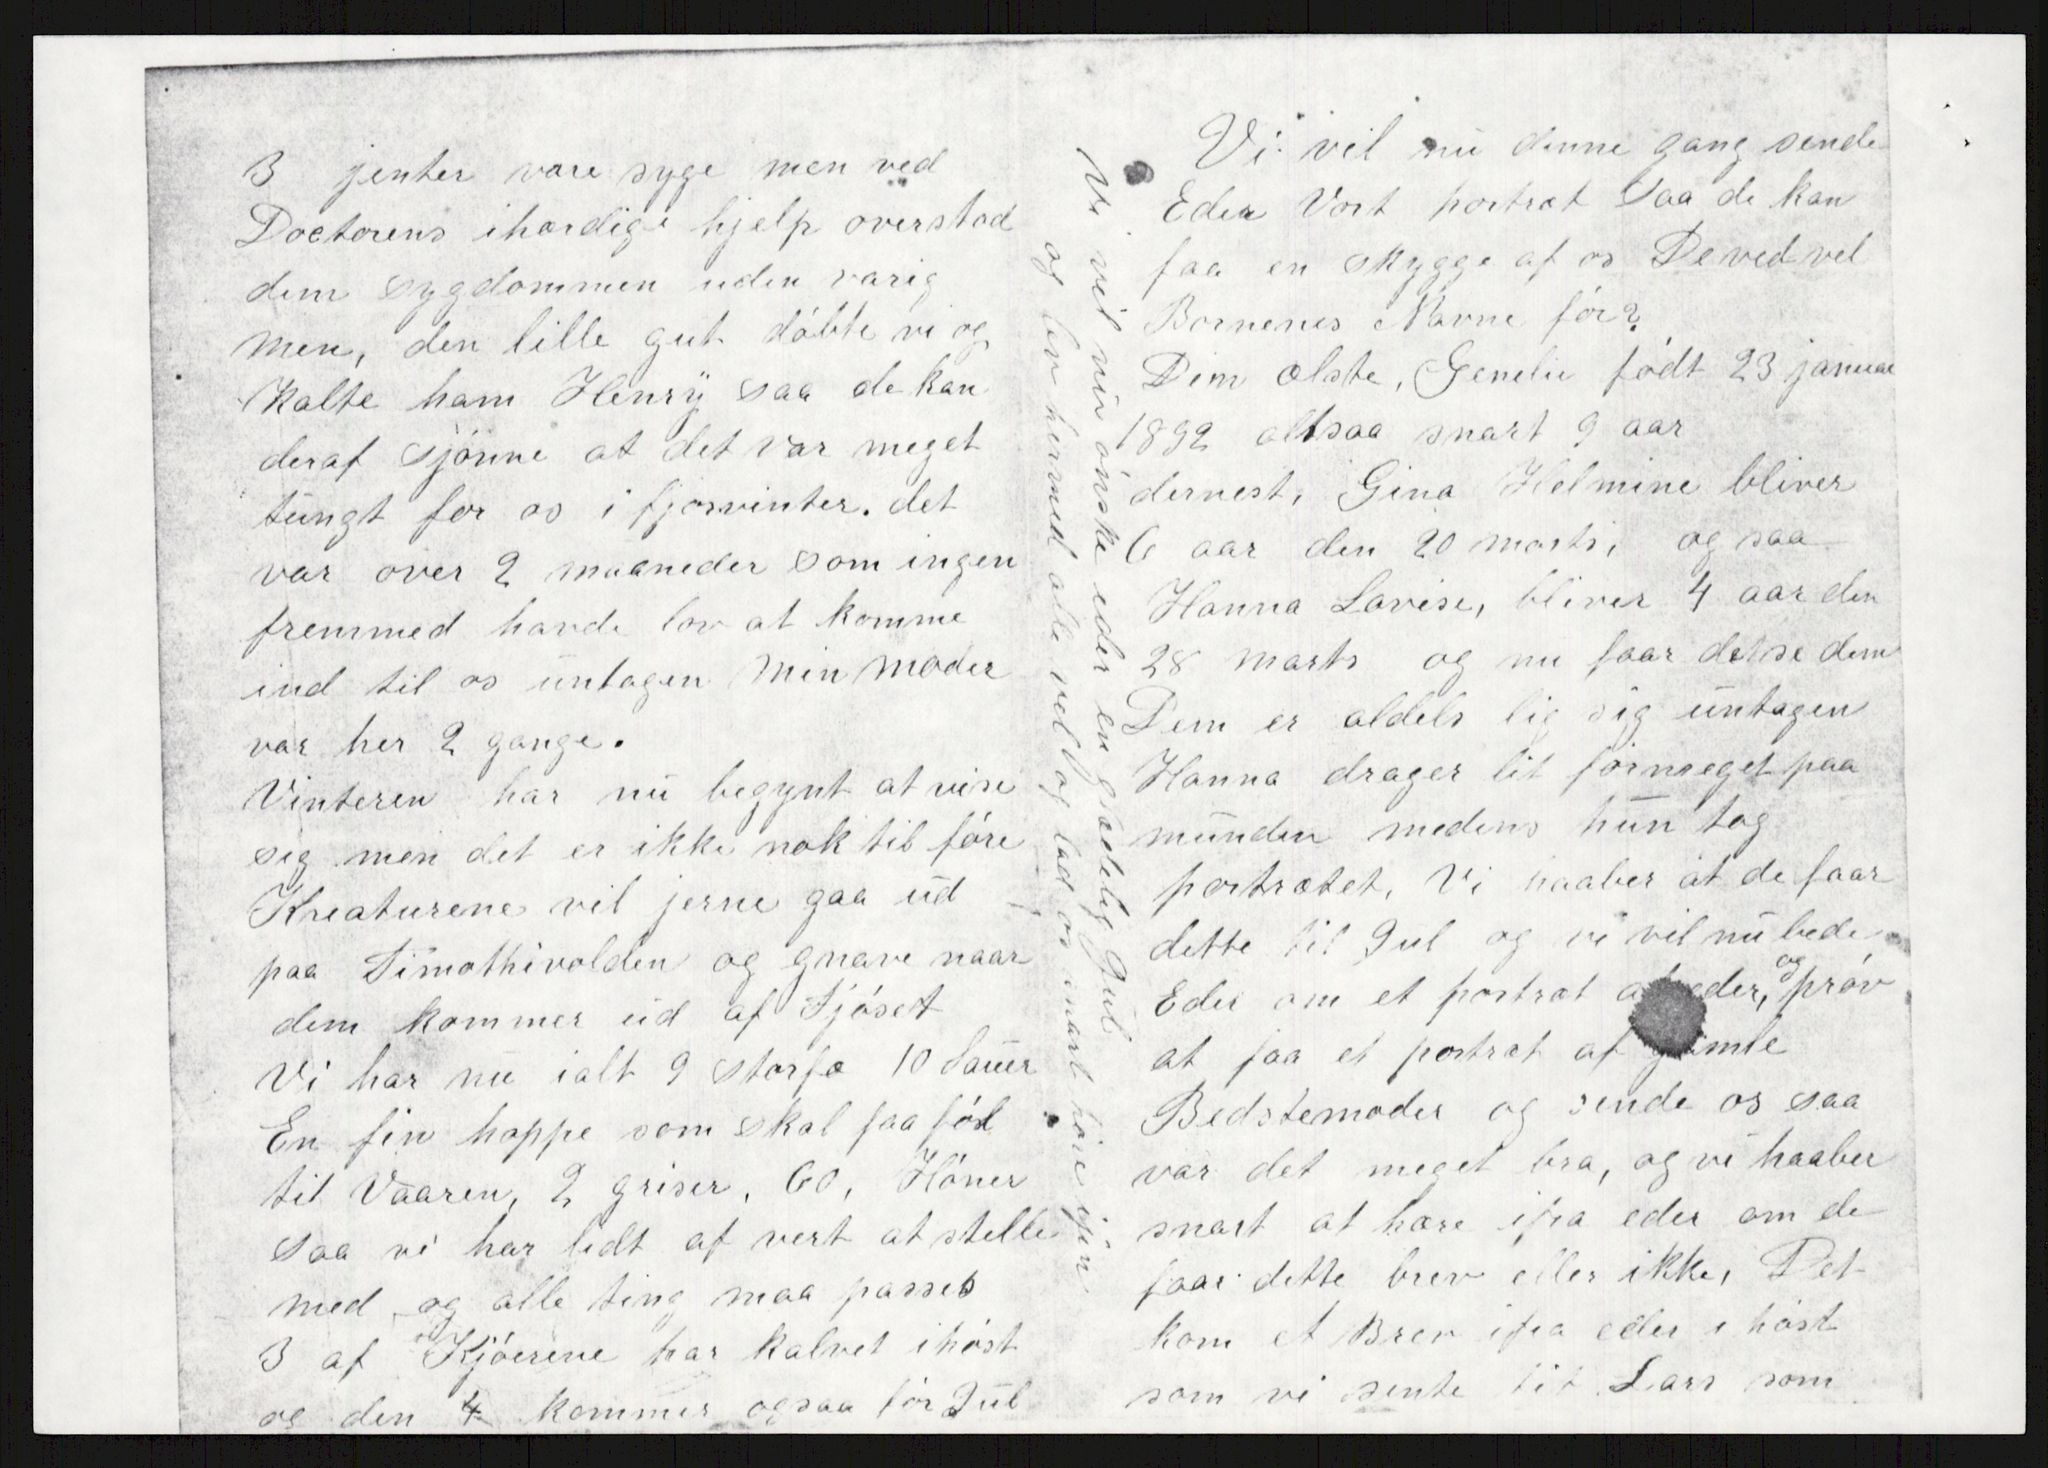 3 jenter vare syge men ved
Doctorens ihærdige hjelp overstod
dem sygdommen uden varig
men, den lille gut döbte vi og
kalte ham Henry saa de kan
deraf sjönne at det var meget
tungt for os i fjorvinter. det
var over 2 maaneder som ingen
fremmed havde lov at komme
ind til os untagen Min Moder
var her 2 gange.
Vinteren har nu begynt at vise
sig men det er ikke nok til före
Kreaturene vil jerne gaa ud
paa Timothivolden og gnave naar
dem kommer ud af Fjöset
Vi har nu ialt 9 storfæ 10 Sauer
En fin hoppe som skal faa föl
til Vaaren, 2 griser, 60, Höner
saa vi har lidt af vert at stelle
med og alle ting maa passes
3 af Kjöerene har kalvet ihöst
og den 4 kommer ogsaa för Jul
Vi vil nu önske eder en glædelig Jul
og lev hermed alle vel og lad os snart höre igjen
Vi vil nu denne gang sende
Eder Vort portræt saa de kan
faa en skygge af os De ved vel
Bornenes Navneför?
Dem ælste, Genelie födt 23 januar
1892 altsaa snart 9 aar
dernest, Gina Helmine bliver
6 aar den 20 marts, og saa
Hanna Lovise, bliver 4 aar den
28 marts og nu faar de se dem
Dem er aldels lig sig untagen
Hanna drager lit formeget paa
munden medens hun tog
portrætet, Vi haaber at de faar
dette til Jul og vi vil nu bede
Eder om et portræt af eder, og pröv
at faa et portræt af gamle
Bedstemoder og sende os saa
var det meget bra, og vi haaber
snart at høre ifra eder om de
faar dette brev eller ikke, Det
kom et Brev ifra eder i höst
som vi sente til Lars som